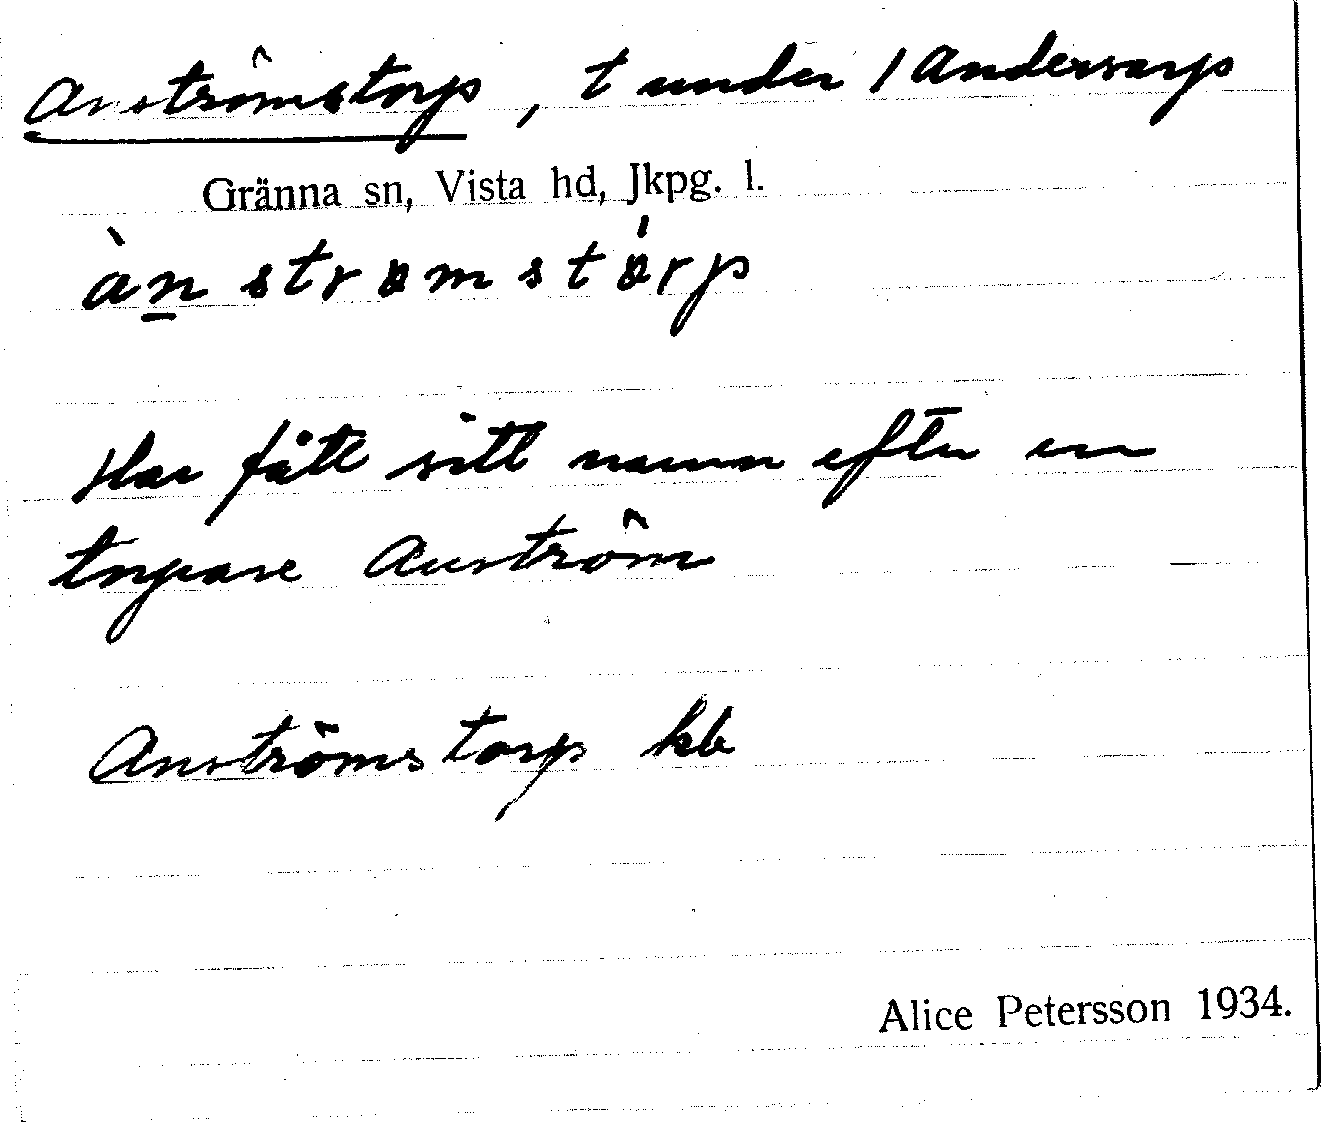 Anströmstorp, t under 1 Andersarp
Gränna sn, Vista hd, Jkpg. l.
ànstrømstórp
Har fått sitt namn efter en
torpare Anström
Anströmstorp kb
Alice Petersson 1934.